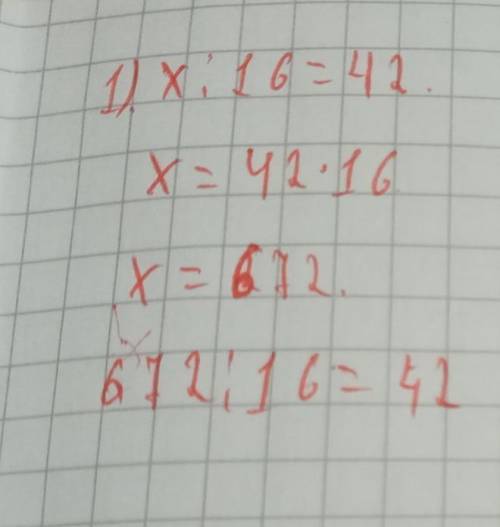 1) x : 16 = 42.
x = 42 · 16
x = 672.
672 : 16 = 42